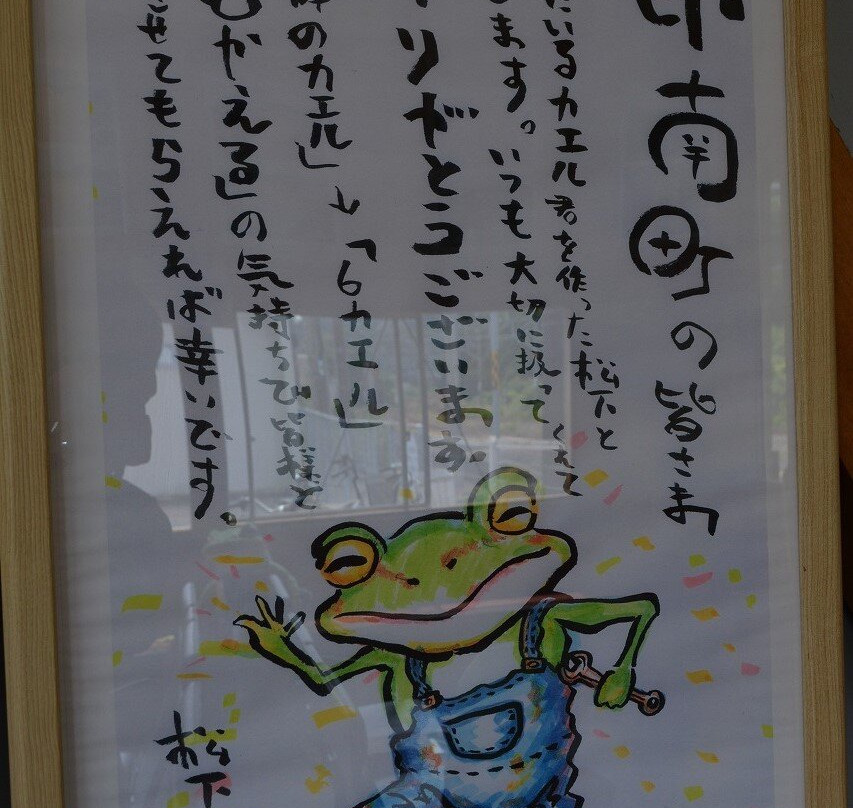 南町の皆さま
いるカエル君を作った松下と
ます。いつも大切に扱ってくれて
りがとうございます
のカエル」→「6カエル」
むかえる」の気持ちで皆様と
させてもらえれば幸いです。
松下